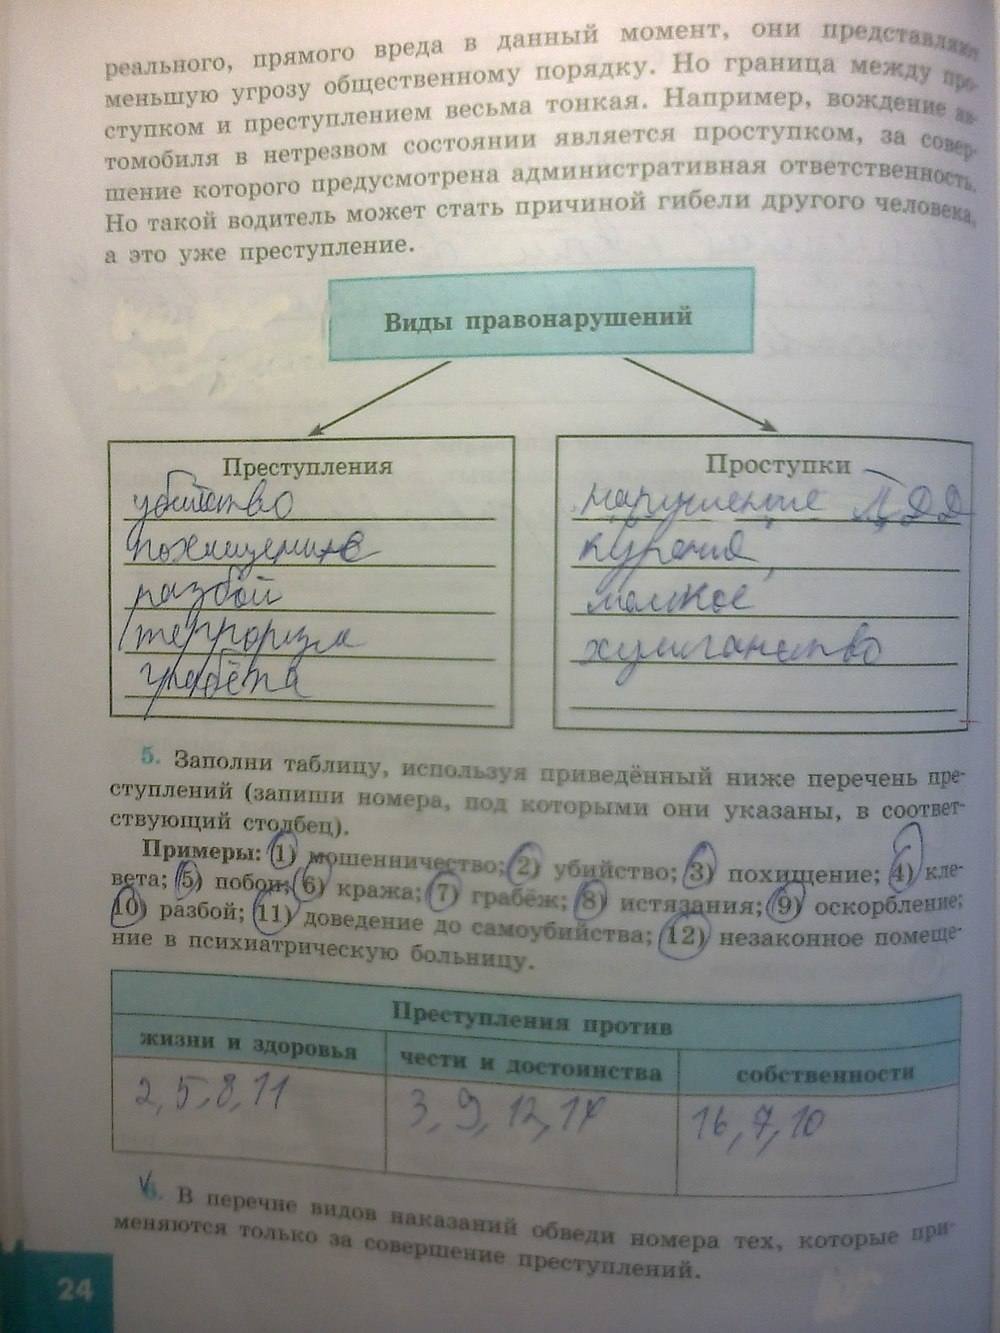 реального, прямого вреда в данный момент, они представляют
меньшую угрозу общественному порядку. Но граница между про-
ступком и преступлением весьма тонкая. Например, вождение ав-
томобиля в нетрезвом состоянии является проступком, за совер-
шение которого предусмотрена административная ответственность.
Но такой водитель может стать причиной гибели другого человека,
а это уже преступление.
Виды правонарушений
Преступления
убийство
похищение
разбой
терроризм
грабёж
Проступки
нарушение ПДД
курение,
мелкое
хулиганство
5. Заполни таблицу, используя приведённый ниже перечень пре-
ступлений (запиши номера, под которыми они указаны, в соответ-
ствующий столбец).
Примеры: 1) мошенничество; 2) убийство; 3) похищение; 4) кле-
вета; 5) побои; 6) кража; 7) грабёж; 8) истязания; 9) оскорбление;
10) разбой; 11) доведение до самоубийства; 12) незаконное помеще-
ние в психиатрическую больницу.
Преступления против
жизни и здоровья
чести и достоинства
собственности
2, 5, 8, 11
3, 9, 12, 14
16, 7, 10
6. В перечне видов наказаний обведи номера тех, которые при-
меняются только за совершение преступлений.
24